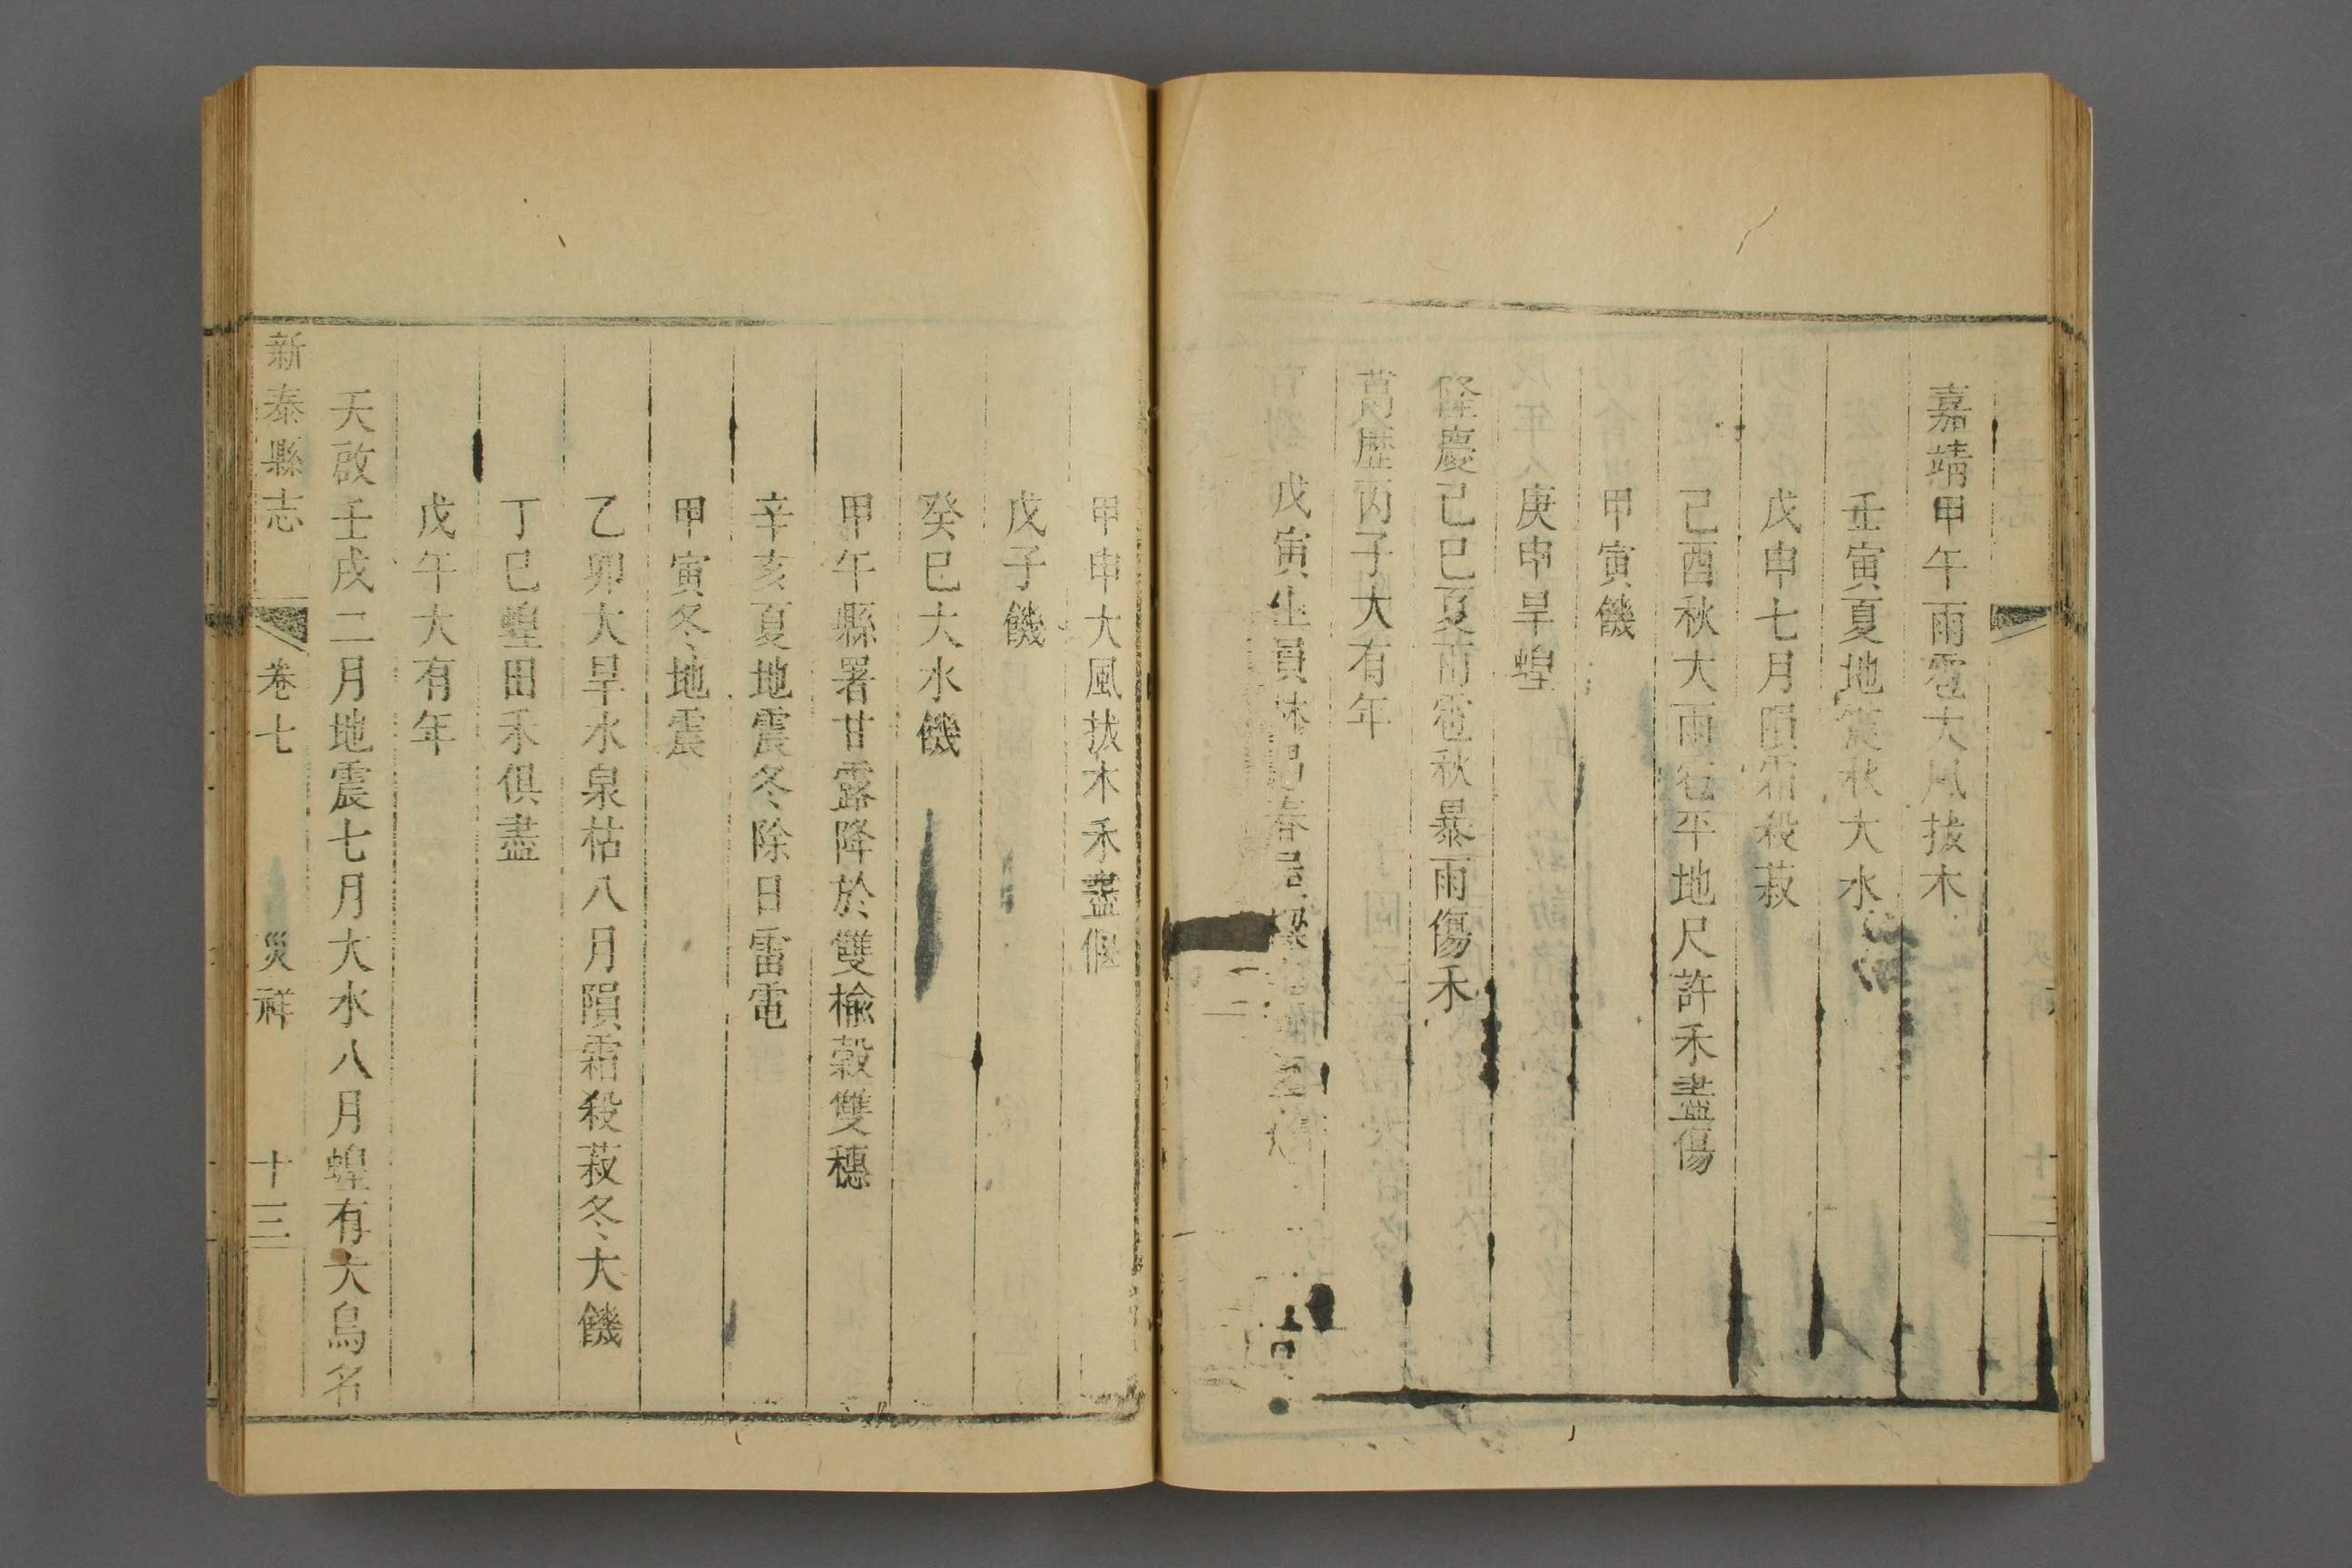 嘉靖甲午雨雹大風拔木
壬寅夏地震秋大水
戊申七月隕霜殺菽
己酉秋大雨雹平地尺許禾盡傷
甲寅饑
庚申旱蝗
隆慶己巳夏雨雹秋暴雨傷禾
萬歷丙子大有年
戊寅生員
甲申大風拔木禾盡偃
戊子饑
癸巳大水饑
甲午縣署甘露降於雙榆穀雙穗
辛亥夏地震冬除日雷電
甲寅冬地震
乙卯大旱水泉枯八月隕霜殺菽冬大饑
丁巳蝗田禾俱盡
戊午大有年
天啟壬戌二月地震七月大水八月蝗有大鳥名
新泰縣志 卷七 災祥 十三